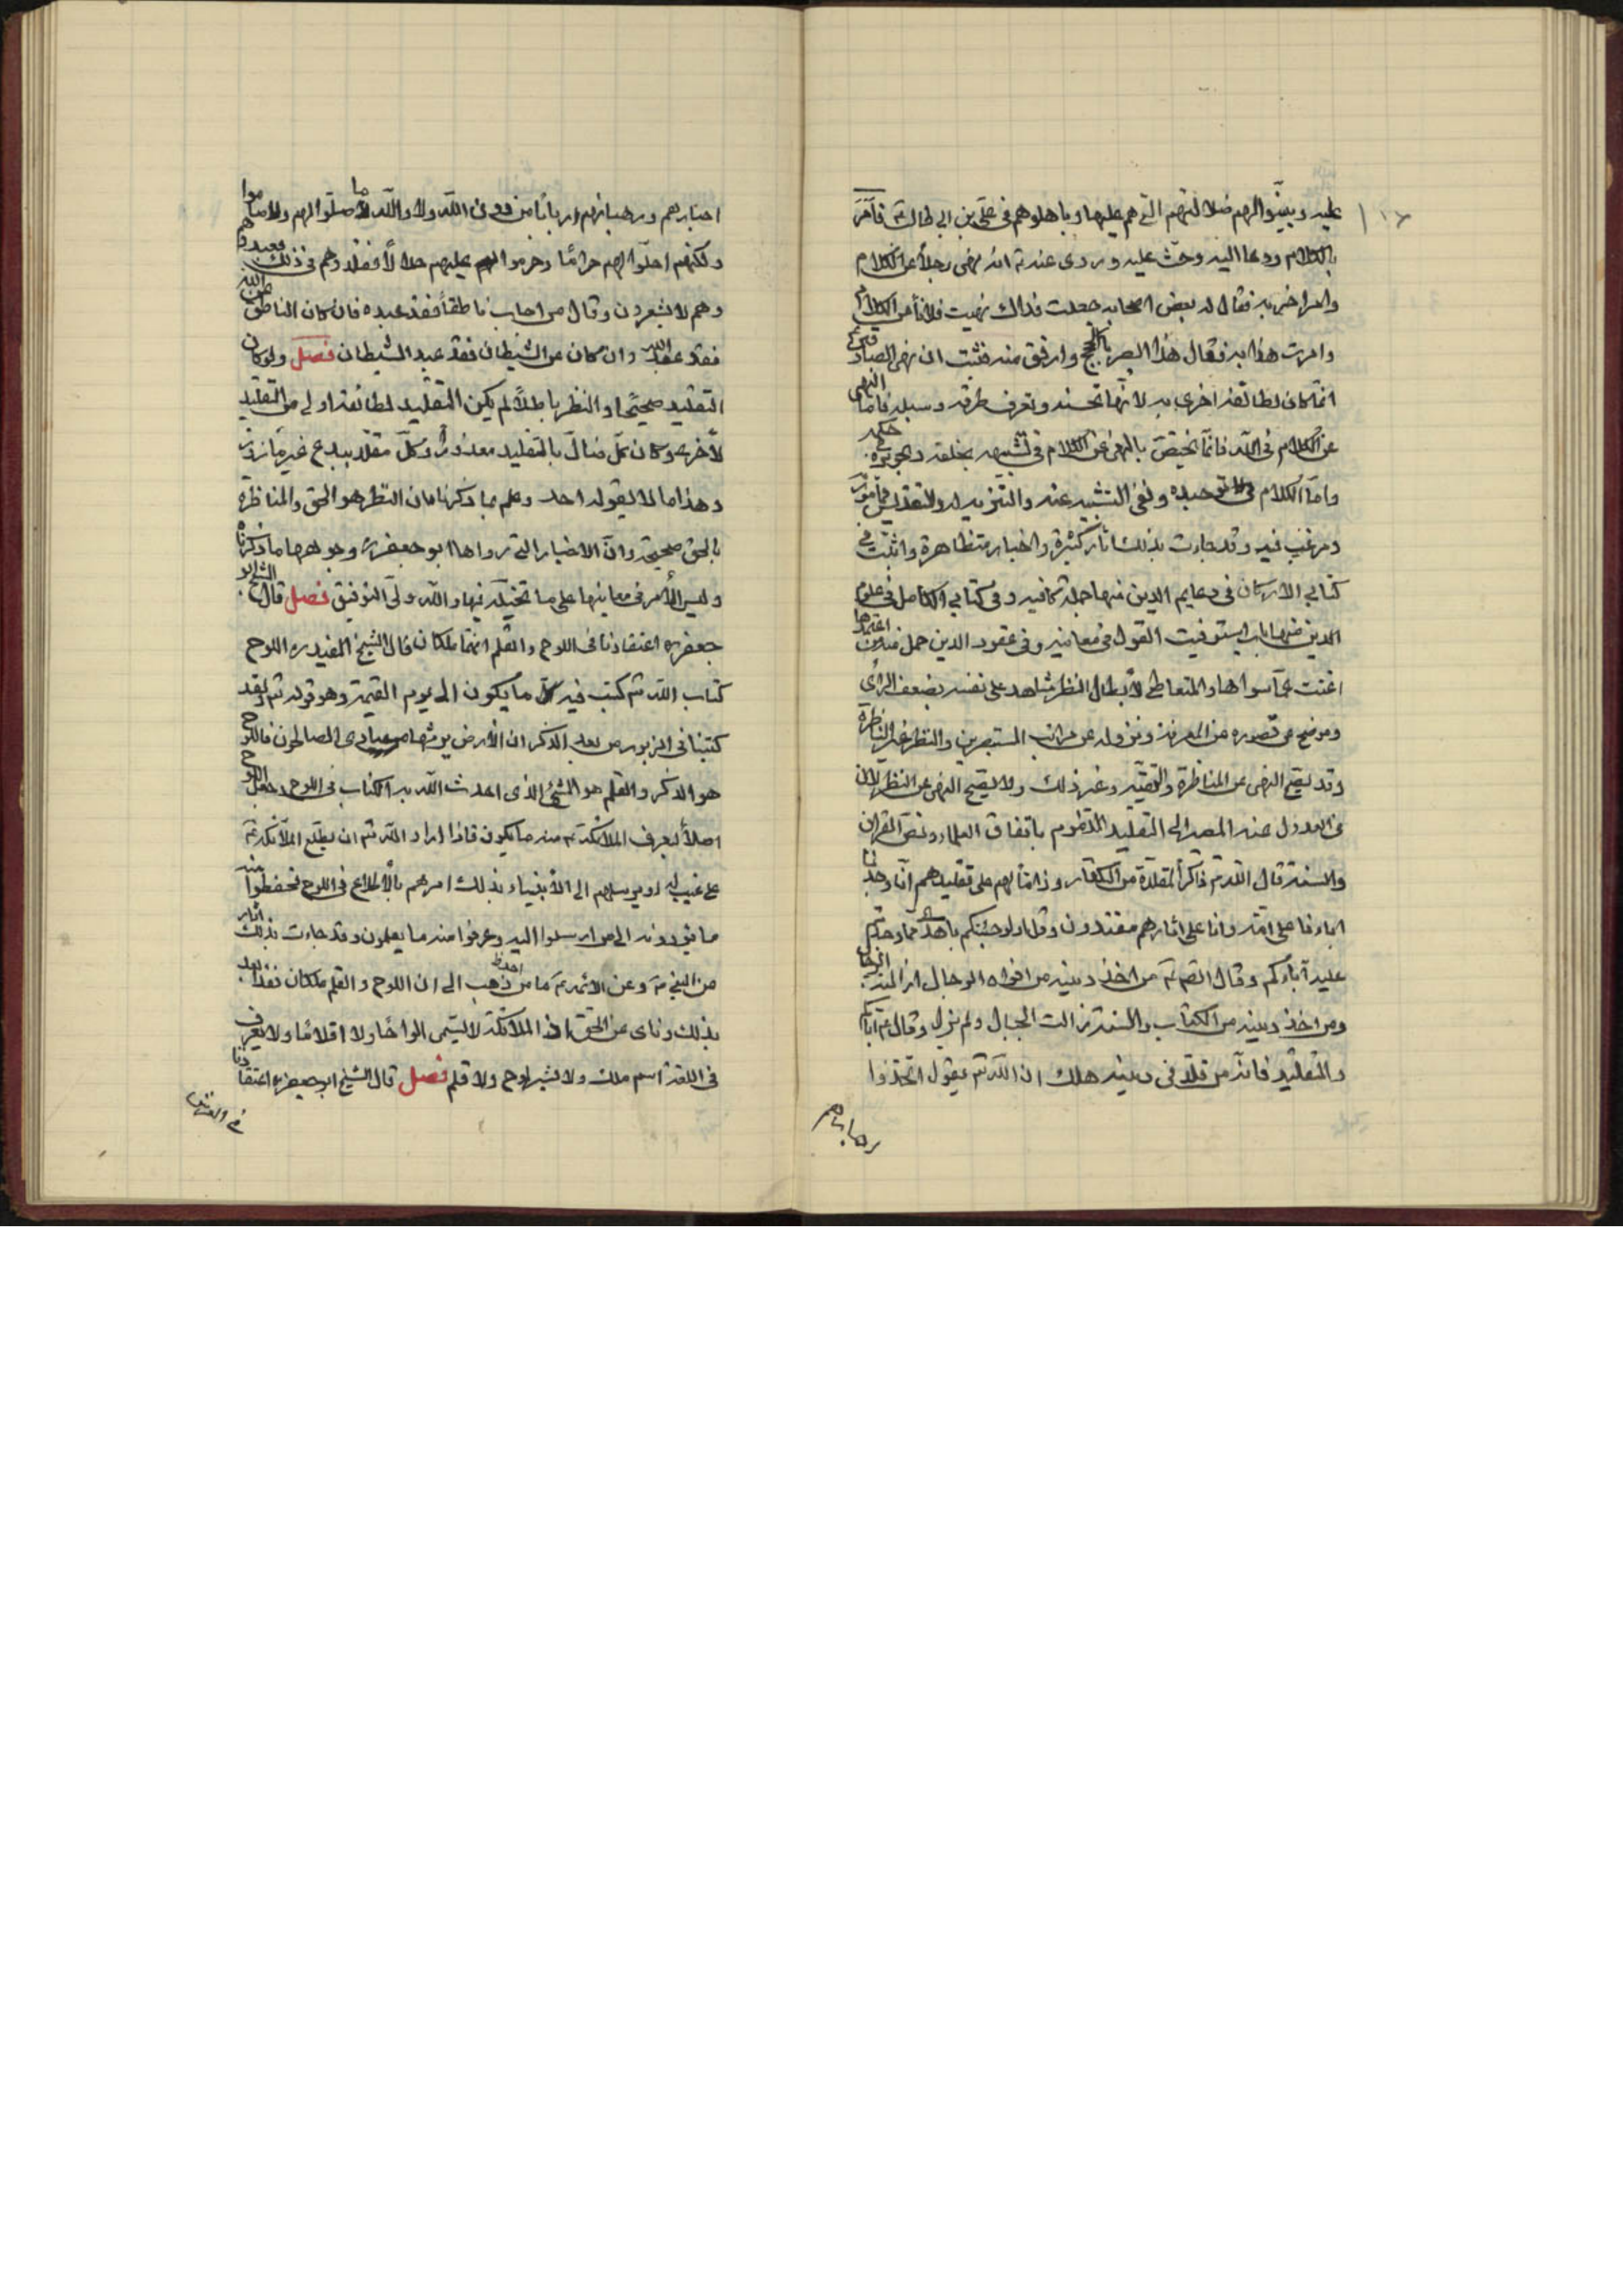 عليه وبينوا لهم ضلالتهم التي هم عليها وباهلوهم في علي بن ابي طالب ع فأمر
بالكلام ودعا اليه وحث عليه وروى عنه ع انه نهى رجلاً عن الكلام
وامر اخر به فقال له بعض اصحابه جعلت فداك نهيت فلانا عن الكلام
وامرت هذا به فقال هذا ابصر بالحجج وارفق منه فثبت ان نهى الصادقين ع
انما كان لطائفة اخرى به لانها تحسنه وتعرف طرقه وسبله فاما النهى
عن الكلام في الله فانما يختص بالنهى عن الكلام في تشبيهه بخلقه وتجويزه في حكمه
واما الكلام في توحيده ونفى التشبيه عنه والتنزيه له والتقديس فمأمور به
ومرغب فيه وقد جاءت بذلك اثار كثيرة واخبار متظاهرة واثبت في
كتابي الاركان في دعايم الدين منها جملة كافيه وفي كتابي الكامل في علوم
الدين منها باب استوفيت القول في معانيه وفي عقود الدين جمل منه من اعتمدها
اغنت عما سواها والمتعاطي لابطال النظر شاهد على نفسه بضعف الرأى
وموضح عن قصوره عن المعرفة ونزوله عن مراتب المستبصرين والنظر غير المناظرة
وقد يصح النهى عن المناظرة والتقية وغير ذلك ولا يصح النهى عن النظر لان
في العدول عنه المصير الى التقليد المذموم باتفاق العلماء ونص القران
والسنة قال الله تع ذاكر المقلدة من الكفار وذاما لهم على تقليدهم انا وجدنا
اباءنا على امة وانا على اثارهم مقتدون وقل اولو جئتكم باهدى مما وجدتم
عليه آباءكم وقال الصادق ع من اخذ دينه من افواه الرجال ازالته الرجال
ومن اخذ دينه من الكتاب والسنة زالت الجبال ولم يزل وقال ع اياكم
والتقليد فانه من قلد في دينه هلك ان الله تع يقول اتخذوا
احبارهم ورهبانهم اربابا من دون الله ولا والله ما صلوا لهم ولا صاموا
ولكنهم احلوا لهم حراما وحرموا عليهم حلالا فقلدوهم في ذلك فعبدوهم
وهم لا يشعرون وقال من اجاب ناطقا فقد عبده فان كان الناطق عن الله
فقد عبد الله وان كان عن الشيطان فقد عبد الشيطان فصل ولو كان
التقليد صحيحا والنظر باطلا لم يكن التقليد لطائفة اولى من التقليد
لأخرى وكان كل ضال بالتقليد معذورا وكل مقلد ببدع غير مازور
وهذا مالا يقوله احد وعلم بما ذكرنا ان النظر هو الحق والمناظرة
بالحق صحيحة وان الاخبار التي رواها ابو جعفر ره وجوهها ما ذكرناه
وليس الأمر في معانيها على ما تخيله فيها والله ولي التوفيق فصل قال الشيخ ابو
جعفر ره اعتقادنا في اللوح والقلم انهما ملكان قال الشيخ المفيد ره اللوح
كتاب الله تع كتب فيه كل ما يكون الى يوم القيمة وهو قوله تع ولقد
كتبنا في الزبور من بعد الذكر ان الأرض يرثها عبادى الصالحون فاللوح
هو الذكر والقلم هو الشئ الذى احدث الله به الكتاب في اللوح وجعل اللوح
اصلا ليعرف الملائكة ع منه ما يكون فاذا اراد الله تع ان يطلع الملائكة ع
على غيب له او يرسلهم الى الأنبياء بذلك امرهم بالأطلاع في اللوح فحفظوا منه
ما يؤدونه الى من ارسلوا اليه وعرفوا منه ما يعلمون وقد جاءت بذلك اثار
من النبي ص وعن الائمة ع فاما من ذهب الى ان اللوح والقلم ملكان فقد ابعد
بذلك وناى عن الحق اذ الملائكة لا تسمى الواحا ولا اقلاما ولا يعرف
في اللغة اسم ملك ولا بشر لوح ولا قلم فصل قال الشيخ ابو جعفر ره اعتقادنا
في العرش